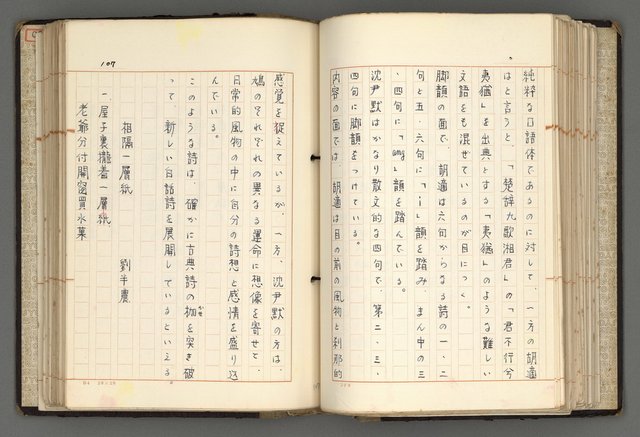 純粋な口語体であるのに対して、一方の胡適
はと言うと、「楚辞九歌湘君」の「君不行兮
夷猶」を出典とする「夷猶」のような難しい
文語をも混ぜているのが目につく。
脚韻の面で、胡適は六句からなる詩の一、二
句と五、六句に「i」韻を踏み、まん中の三
、四句に「ang」韻を踏んでいる。
沈尹默はかなり散文的な四句で、第二、三、
四句に脚韻をつけている。
内容の面では、胡適は目の前の風物と刹那的
107
感覚を捉えているが、一方、沈尹默の方は、
鳩のそれぞれの異なる運命に想像を寄せて、
日常的風物の中に自分の詩想と感情を盛り込
んでいる。
このような詩は、確かに古典詩の枷を突き破
かせ
って、新しい白話詩を展開しているといえる
。
相隔一層紙
劉半農
一屋子裏攏着一層紙
老爺分付開窗買水菓